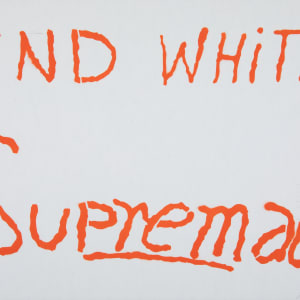 ND WHiT
Suprema